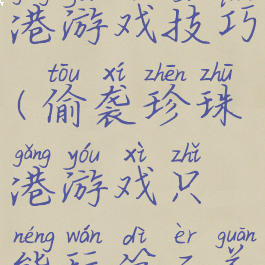 港游戏技巧
tōu xí zhēn zhū
(偷袭珍珠
gǎng yóu xì zhǐ
港游戏只
néng wán dì èr guān